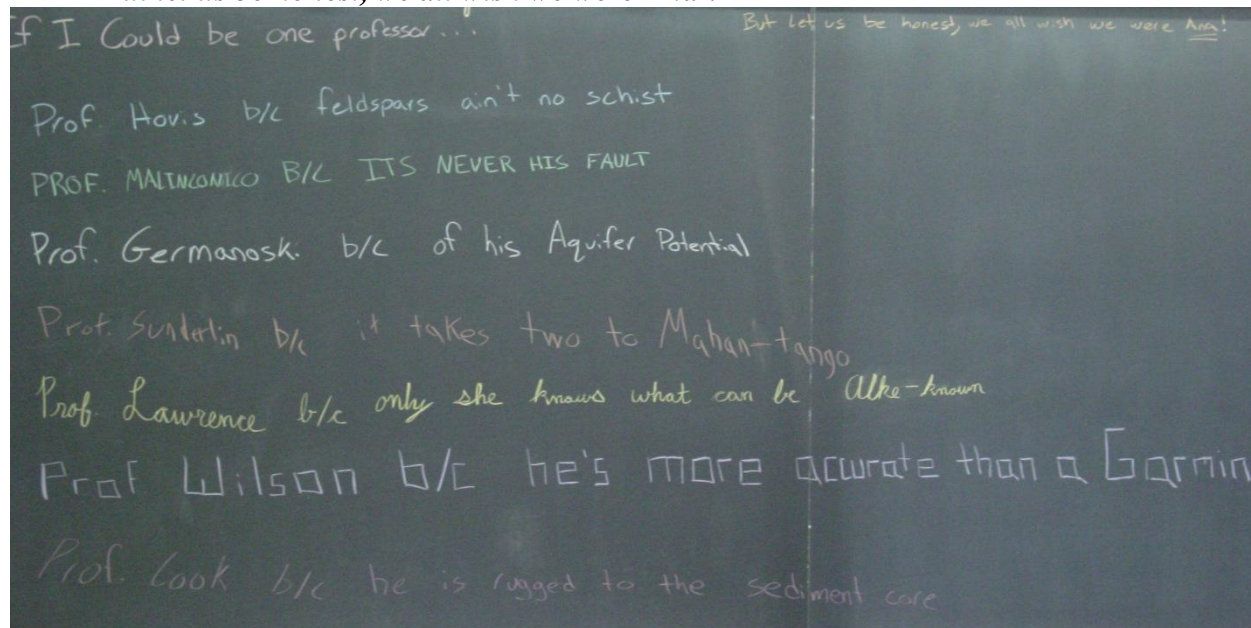 If I Could be one professor...
But Let us be honest, we all wish we were Ana!
Prof. Hovis b/c feldspars ain't no schist
PROF. MALINCONICO B/C ITS NEVER HIS FAULT
Prof. Germanoski b/c of his Aquifer Potential
Prof. Sunderlin b/c it takes two to Mahan-tango
Prof. Lawrence b/c only she knows what can be Alke-known
Prof Wilson b/c he's more acurate than a Garmin
Prof. Cook b/c he is rugged to the sediment core